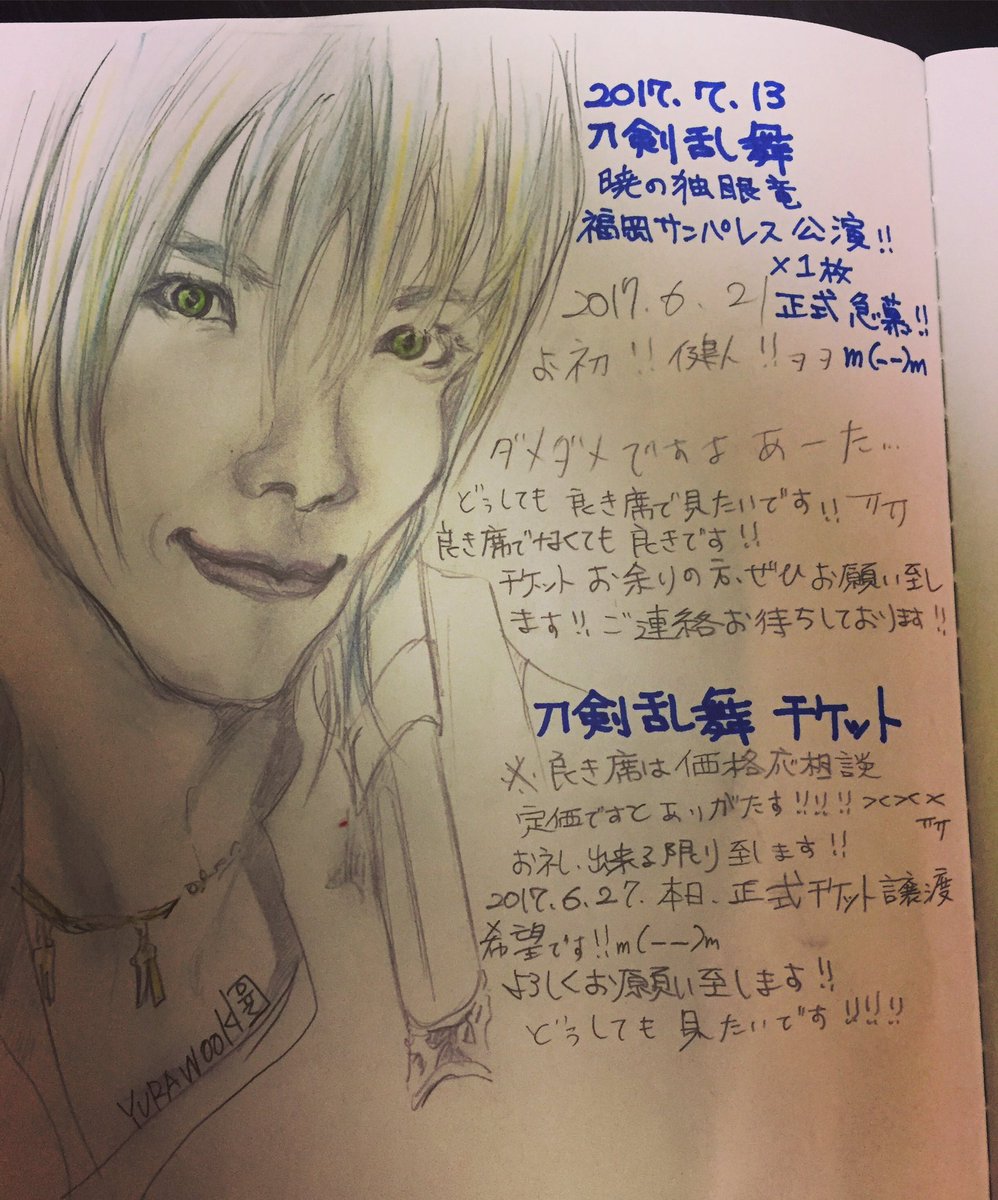 2017.7.13
刀剣乱舞
暁の独眼竜
福岡サンパレス公演!!
×1枚
正式 急募!!
m(--)m
2017.6.21
よ初!!健人!!ヲヲ
ダメダメですよ あーた…
どうしても 良き席で見たいです!! TT
良き席でなくても 良きです!!
チケット お余りの方、ぜひ お願い致し
ます!! ご連絡お待ちしております!!
刀剣乱舞 チケット
※良き席は価格応相談
定価ですと ありがたす!!!!!! ><><
TT
お礼、出来る限り至します!!
2017.6.27. 本日、正式チケット譲渡
希望です!!m(--)m
よろしくお願い至します!!
どうしても 見たいです!!!!!!
YURAWOOK